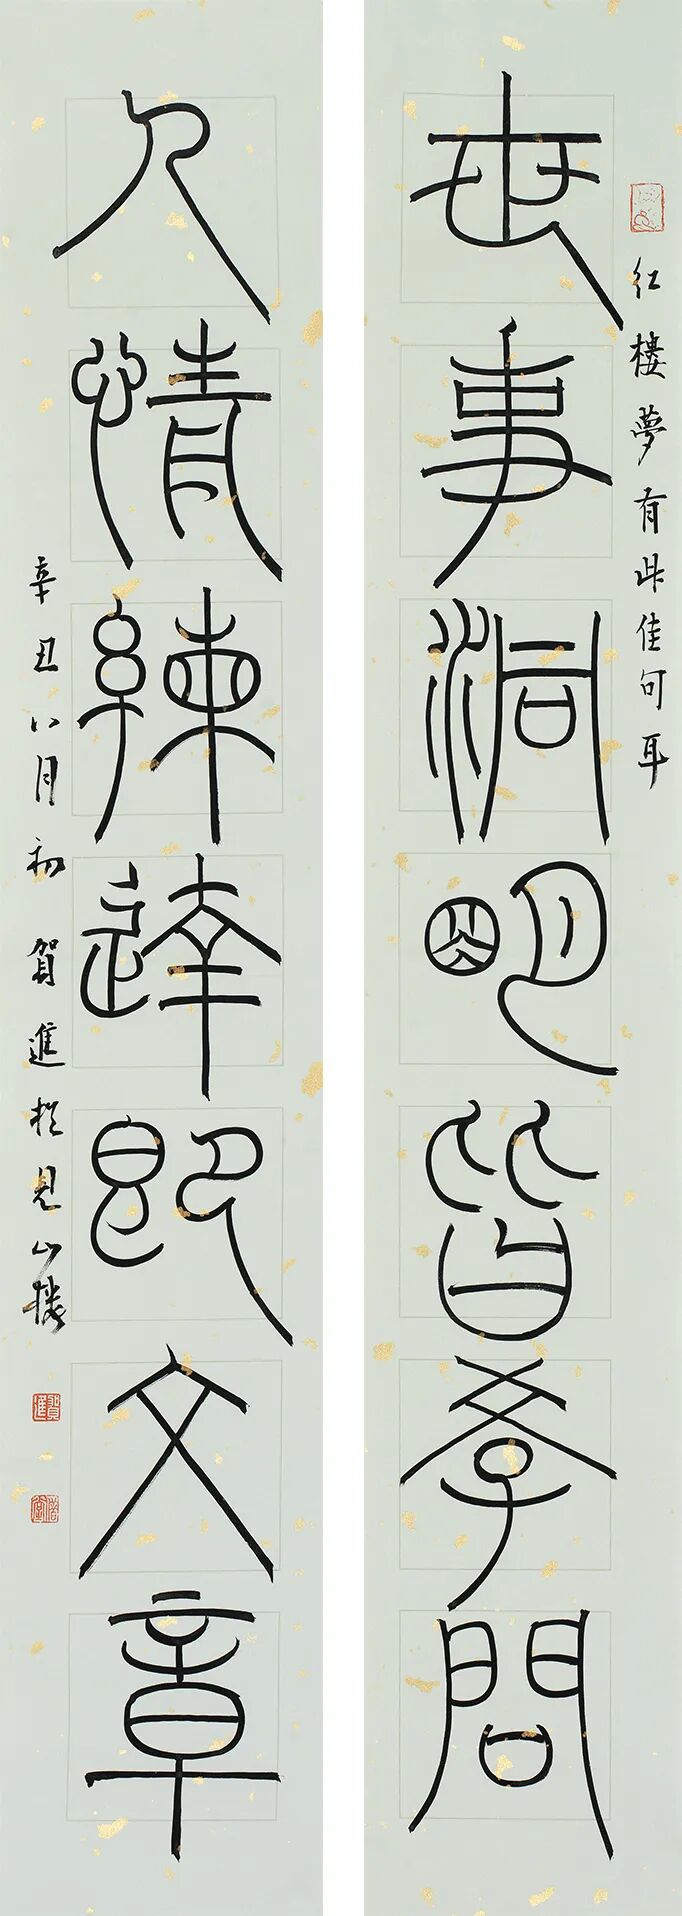 紅樓夢有此佳句耳
世事洞明皆學問
人情練達即文章
辛丑八月初賀進於見山樓
賀進